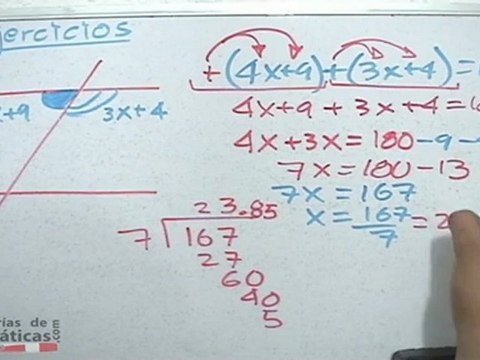 ercicios
+(4x+9)+(3x+4)=1
x+9
3x+4
4x+9+3x+4=1
4x+3x=180-9-
7x=180-13
7x=167
x=167/7=2
23.85
7 167
27
60
40
5
rías de
áticas.com